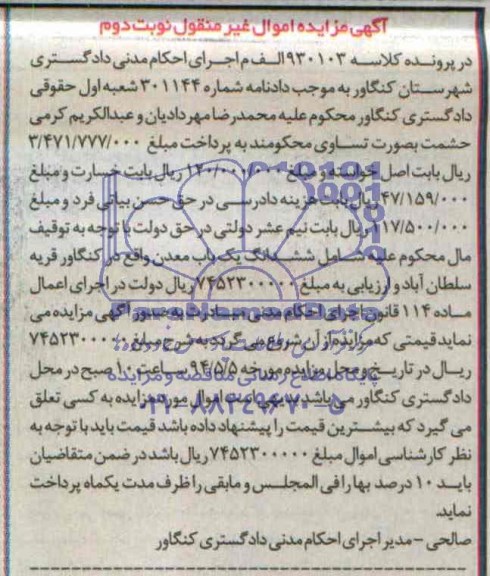 آگهی مزایده اموال غیر منقول نوبت دوم
در پرونده کلاسه ۹۳۰۱۰۳ الف م اجرای احکام مدنی دادگستری
شهرستان کنگاور به موجب دادنامه شماره ۳۰۱۱۴۴ شعبه اول حقوقی
دادگستری کنگاور محکوم علیه محمدرضا مهردادیان و عبدالکریم کرمی
حشمت بصورت تساوی محکومند به پرداخت مبلغ ۳/۴۷۱/۷۷۷/۰۰۰
ریال بابت اصل خواسته و مبلغ ۱۲۰/۰۰۰/۰۰۰ ریال بابت خسارت و مبلغ
۴۷/۱۵۹/۰۰۰ ریال بابت هزینه دادرسی در حق حسن بیاتی فرد و مبلغ
۱۱۷/۵۰۰/۰۰۰ ریال بابت نیم عشر دولتی در حق دولت با توجه به توقیف
مال محکوم علیه شامل ششدانگ یک باب معدن واقع در کنگاور قریه
سلطان آباد و ارزیابی به مبلغ ۷۴۵۲۳۰۰۰۰۰ ریال دولت در اجرای اعمال
ماده ۱۱۴ قانون اجرای احکام مدنی مبادرت به صدور آگهی مزایده می
نماید قیمتی که مزایده از آن شروع می گردد به شرح مبلغ ۷۴۵۲۳۰۰۰۰۰
ریال در تاریخ و محل مزایده مورخه ۹۴/۵/۵ ساعت ۱۰ صبح در محل
دادگستری کنگاور می باشد بدیهی است اموال مورد مزایده به کسی تعلق
می گیرد که بیشترین قیمت را پیشنهاد داده باشد قیمت باید با توجه به
نظر کارشناسی اموال مبلغ ۷۴۵۲۳۰۰۰۰۰ ریال باشد در ضمن متقاضیان
باید ۱۰ درصد بها را فی المجلس و مابقی را ظرف مدت یکماه پرداخت
نماید.
صالحی - مدیر اجرای احکام مدنی دادگستری کنگاور
پایگاه اطلاع رسانی مناقصه و مزایده
۰۲۱-۸۸۳۴۹۶۷۰-۵